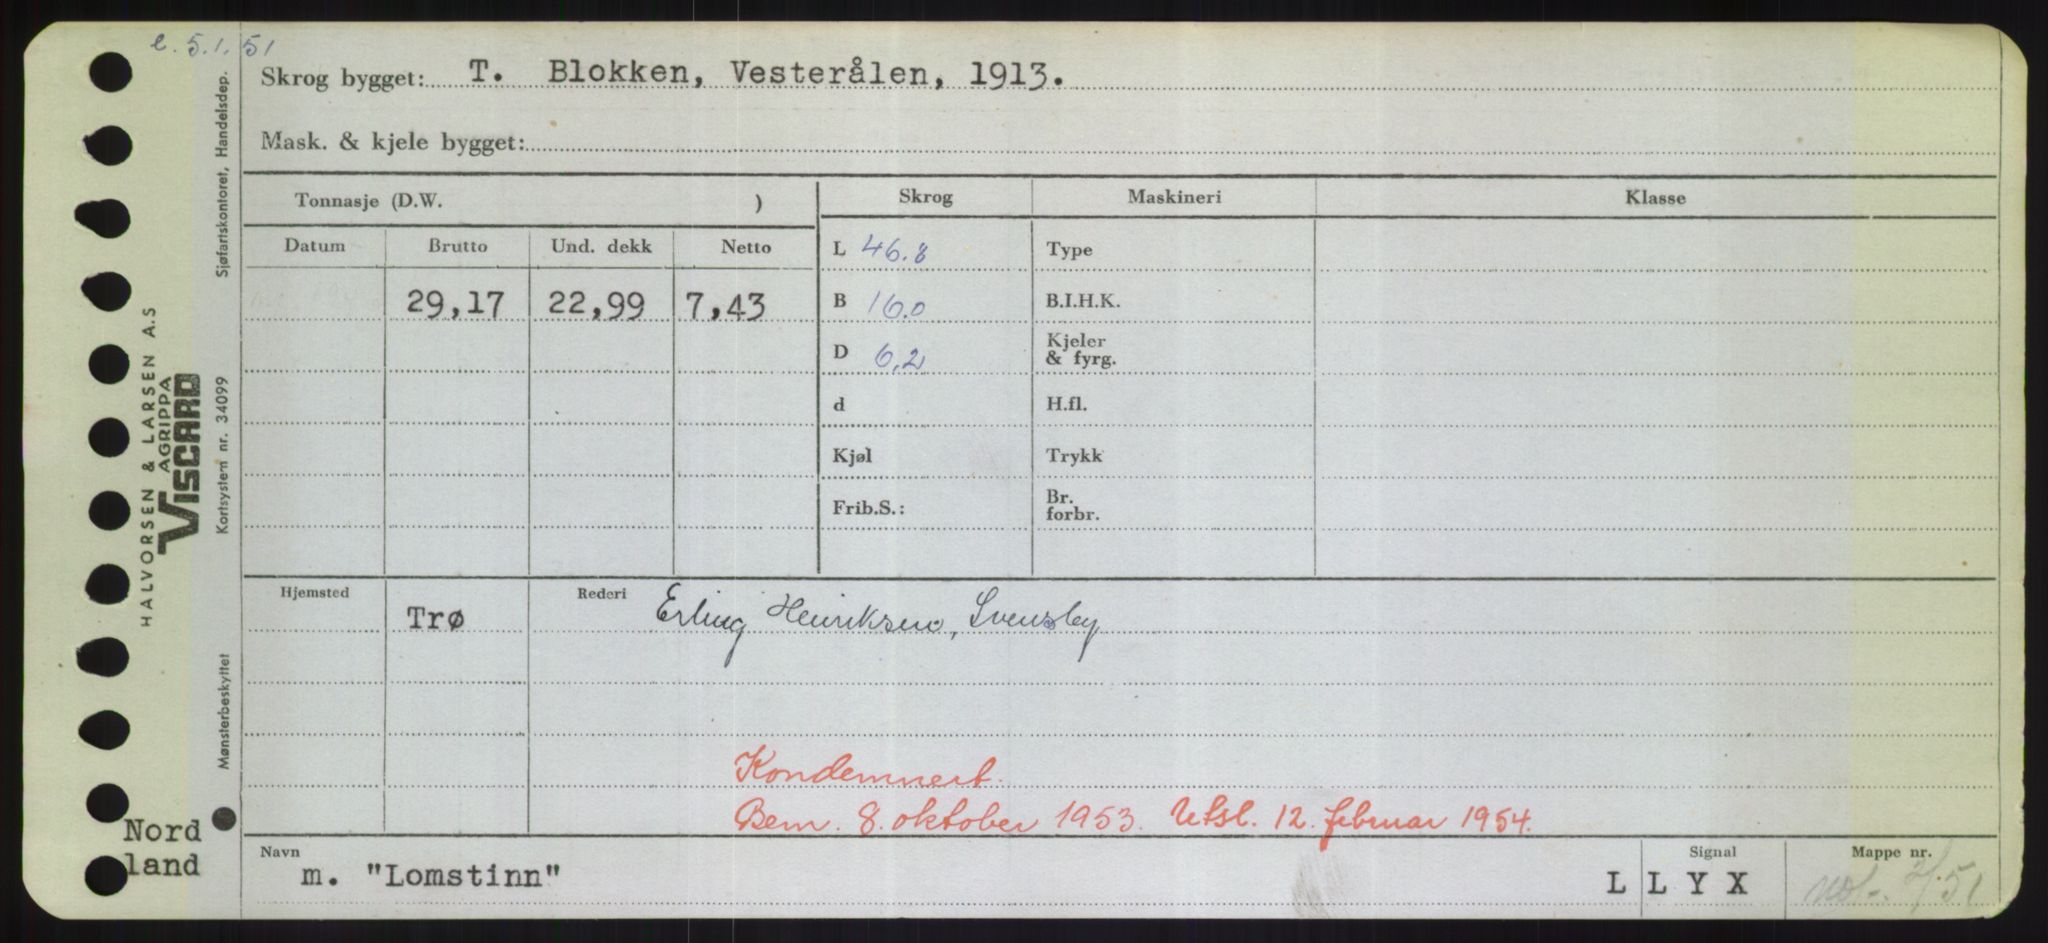 e. 5.1.51
Skrog bygget: T. Blokken, Vesterålen, 1913.
Mask. & kjele bygget:
Tonnasje (D.W. )
Datum Brutto Und. dekk Netto
29,17 22,99 7,43
Skrog Maskineri Klasse
L 46.8 Type
B 16.0 B.I.H.K.
D 6,2 Kjeler
& fyrg.
d H.fl.
Kjøl Trykk
Frib.S.: Br.
forbr.
Hjemsted Trø Rederi Erling Henriksen, Svensby
Kondemnert.
Bem. 8. oktober 1953. Utsl. 12. februar 1954.
Navn m. "Lomstinn"
Signal L L Y X
Mappe nr. 2/51
Nord
land
HALVORSEN & LARSEN A.S
AGRIPPA
VISCARD
Mønsterbeskyttet Kortsystem nr. 34099 Sjøfartskontoret, Handelsdep.